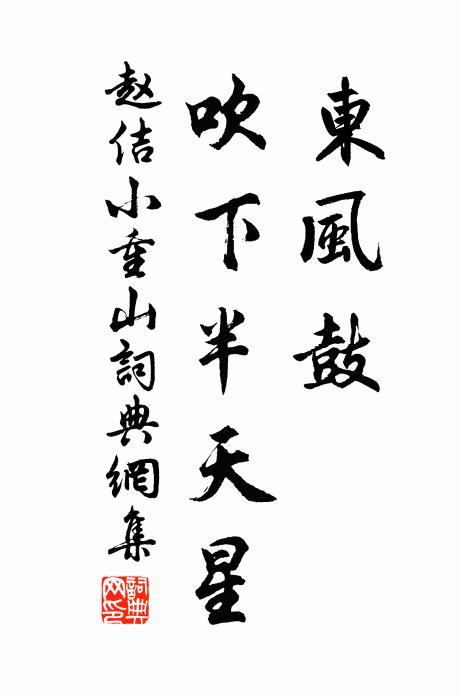 東風鼓
吹下半天星
赵佶小重山詞典網集
詞典网印